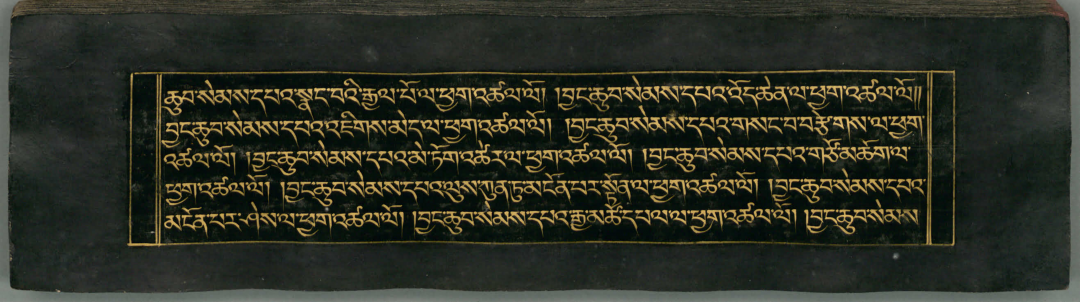 ཆུབ་སེམས་དཔའ་སྣང་བའི་རྒྱལ་པོ་ལ་ཕྱག་འཚལ་ལོ། །བྱང་ཆུབ་སེམས་དཔའ་འོད་ཚེན་ལ་ཕྱག་འཚལ་ལོ།།
བྱང་ཆུབ་སེམས་དཔའ་འཇིགས་མེད་ལ་ཕྱག་འཚལ་ལོ། །བྱང་ཆུབ་སེམས་དཔའ་གསང་བ་བརྩེགས་ལ་ཕྱག་
འཚལ་ལོ། །བྱང་ཆུབ་སེམས་དཔའ་མེ་ཏོག་འཚེར་ལ་ཕྱག་འཚལ་ལོ། །བྱང་ཆུབ་སེམས་དཔའ་གཙོ་མཆོག་ལ་
ཕྱག་འཚལ་ལོ། །བྱང་ཆུབ་སེམས་དཔའ་ལུས་ཀུན་ཏུ་མངོན་པར་སྟོན་ལ་ཕྱག་འཚལ་ལོ། །བྱང་ཆུབ་སེམས་དཔའ་
མངོན་པར་ཤེས་ལ་ཕྱག་འཚལ་ལོ། །བྱང་ཆུབ་སེམས་དཔའ་རྒྱ་མཚོ་དཔལ་ལ་ཕྱག་འཚལ་ལོ། །བྱང་ཆུབ་སེམས